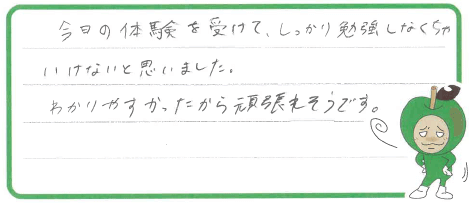 今日の体験を受けて、しっかり勉強しなくちゃ
いけないと思いました。
わかりやすかったから頑張れそうです。